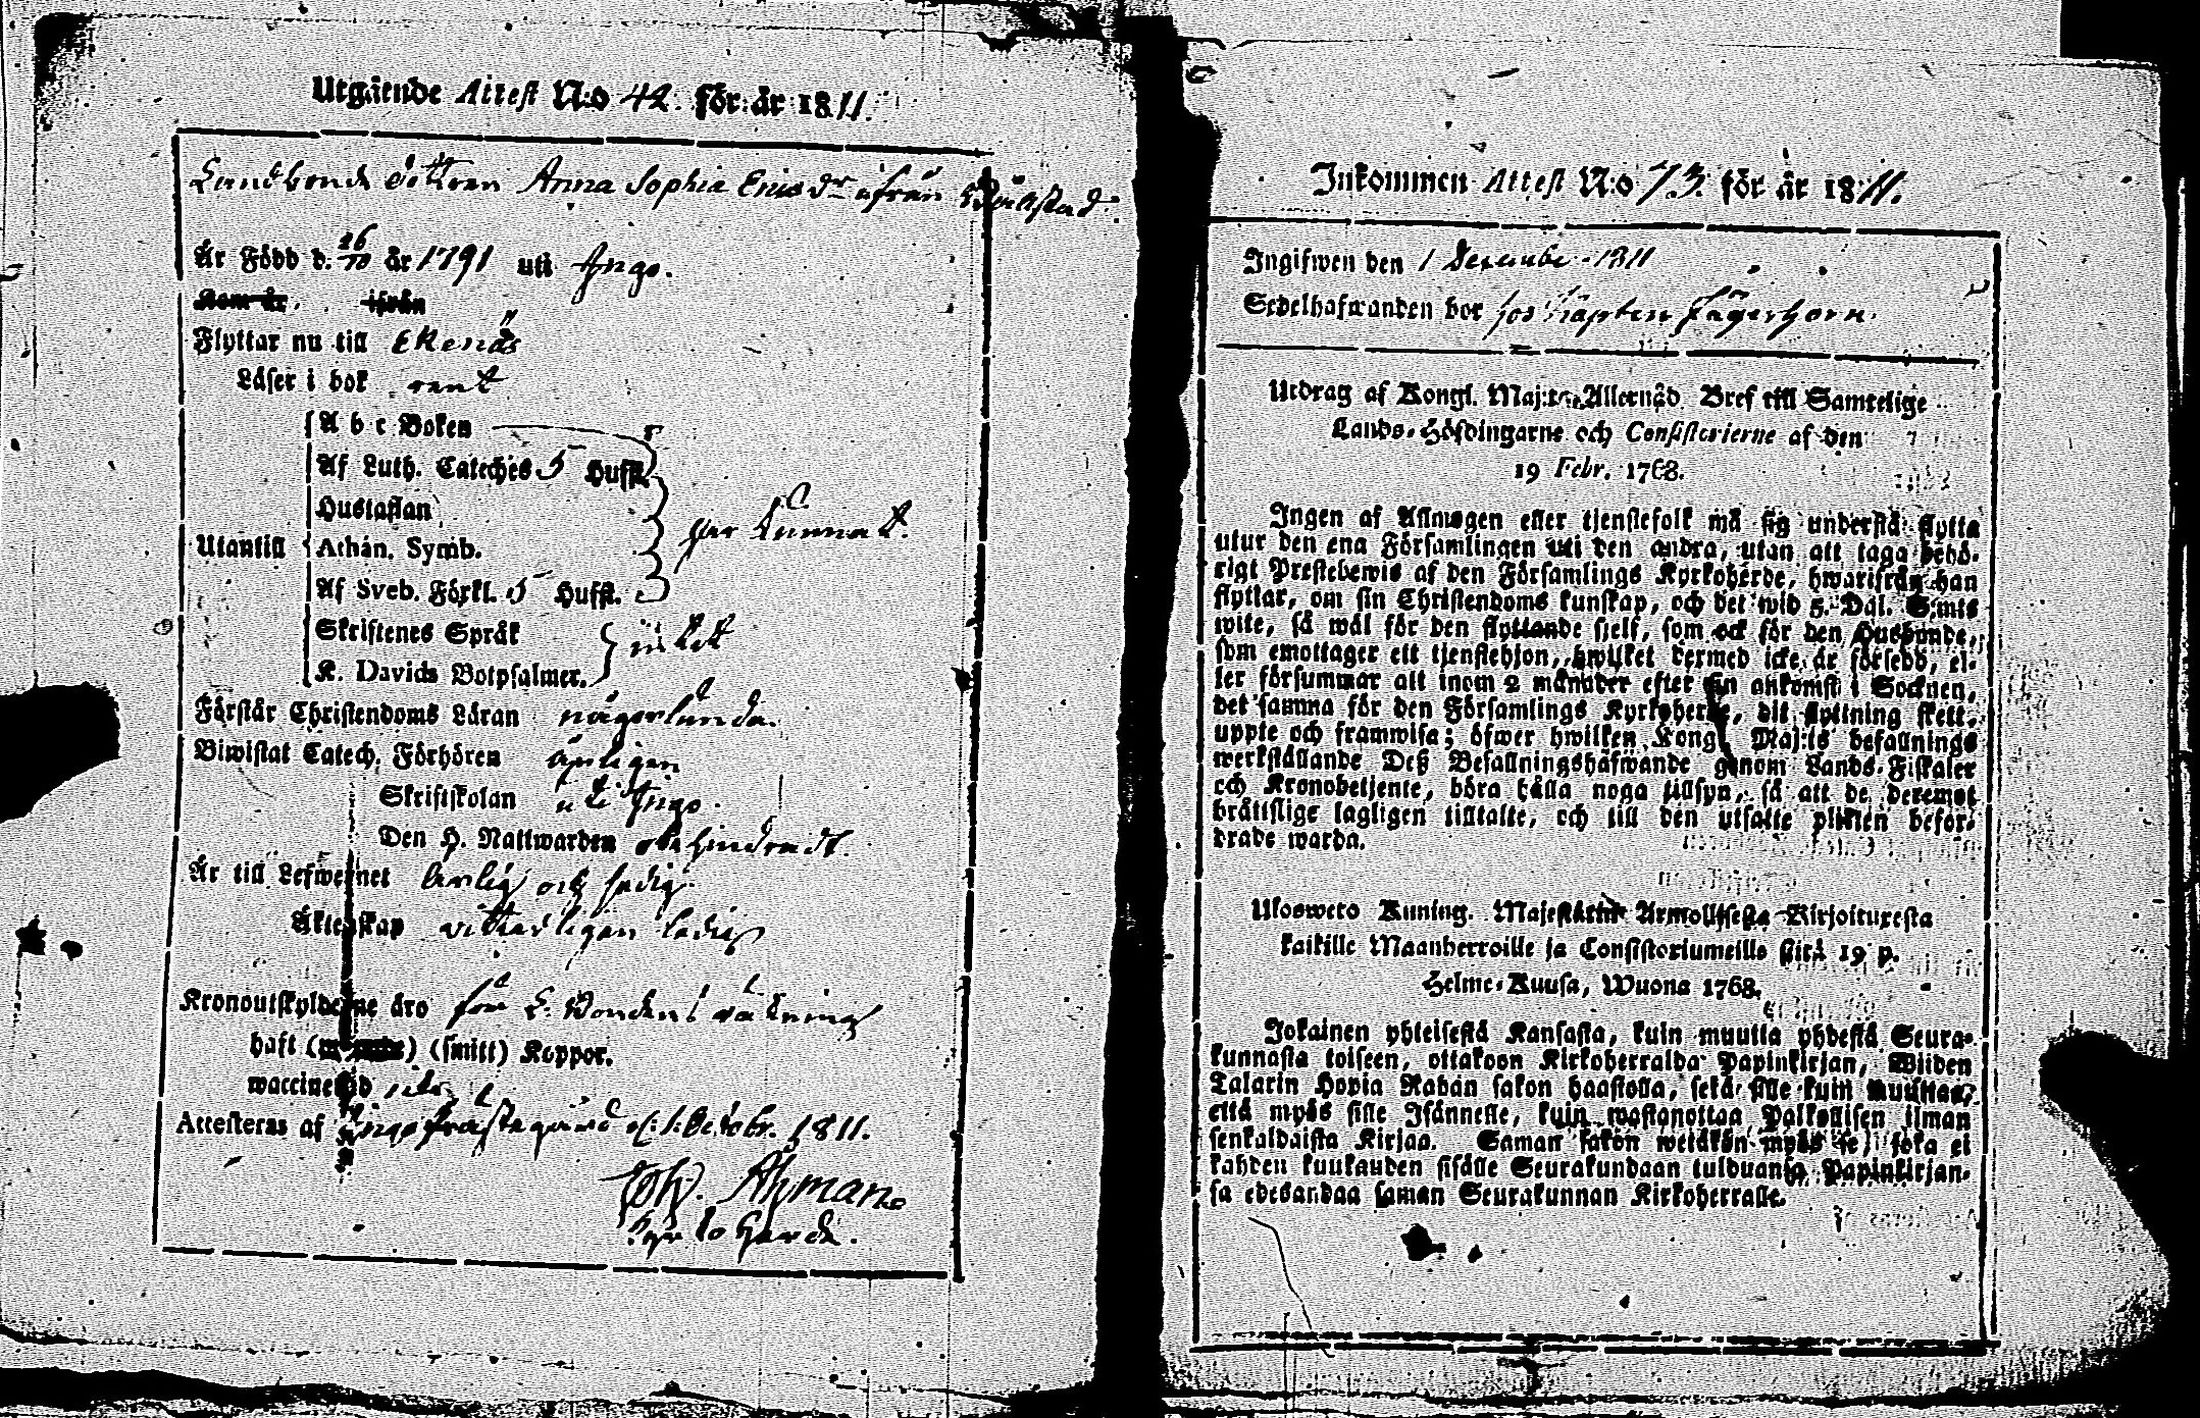 Utgående Attest N:o 42. för år 1811.
Landbonde dottren Anna Sophia Ericsdr ifrån
Är Född d. 26/10 år 1791 uti Ingo.
Kom år, ifrån
Flyttar nu till Ekenäs
Läser i bok rent
Utantill
A b c Boken
Af Luth. Cateches 5 Hufst.
Hustaflan
Athan. Symb.
Af Sveb. Förkl. 5 Hufst.
har kunnat.
Skriftenes Språk
K. Davids Botpsalmer.
Förstår Christendoms Läran någorlunda.
Biwistat Catech. Förhören årligen
Skriftskolan uti Ingo.
Den H. Nattwarden obehindradt.
Är till Lefwernet ärlig och sedig.
Äktenskap vitterligen ledig
Kronoutskylderne äro för L. Bondens räkning
haft () (smitt) Koppor.
waccinerad
Attesteras af Ingo Prästegård d. 1. Octobr. 1811.
Joh. Ahman
Kyrko Herde.
Inkommen Attest N:o 73. för år 1811.
Ingifwen den 1 December 1811
Sedelhafwanden bor hos Kapten Jägerhorn.
Utdrag af Kongl. Maj:ts Allernåd. Bref till Samtelige
Lands-Höfdingarne och Consistorierne af den
19 Febr. 1768.
Ingen af Allmogen eller tjenstefolk må sig understå flytta
utur den ena Församlingen uti den andra, utan att taga behö-
rigt Prestebewis af den Församlings Kyrkoherde, hwarifrån han
flyttar, om sin Christendoms kunskap, och det wid 5. Dal. S:mts
wite, så wäl för den flyttande sjelf, som ock för den Husbonde,
som emottager ett tjenstehjon, hwilket dermed icke är försedd, el-
ler försummar att inom 2 månader efter sin ankomst i Socknen,
det samma för den Församlings Kyrkoherde, dit flyttning skett,
uppte och framwisa; öfwer hwilken Kongl. Maj:ts befallnings
werkställande Deß Befallningshäfwande genom Lands-Fiskaler
och Kronobetjente, böra hålla noga tillsyn, så att de deremot
bråttslige lagligen tilltalte, och till den utsatte plikten beför-
drade warda.
Uloswеto Kuning. Majestätin Armollisesta Kirjoituxesta
kaikille Maanherroille ja Consistoriumeille siitä 19 p.
Helme-Kuusa, Wuona 1768.
Jokainen yhteisestä Kansasta, kuin muutta yhdestä Seura-
kunnasta toiseen, ottakoon Kirkoherralda Papinkirjan, Wiiden
Talarin Hopia Rahan sakon haastolla, sekä sille kuin muuttaa,
että myös sille Isännelle, kuin wastanottaa Palkollisen ilman
senkaldaista Kirjaa. Saman sakon wetäkön myös se, joka ei
kahden kuukauden sisälle Seurakundaan tulduansa Papinkirjan-
sa edesandaa saman Seurakunnan Kirkoherralle.